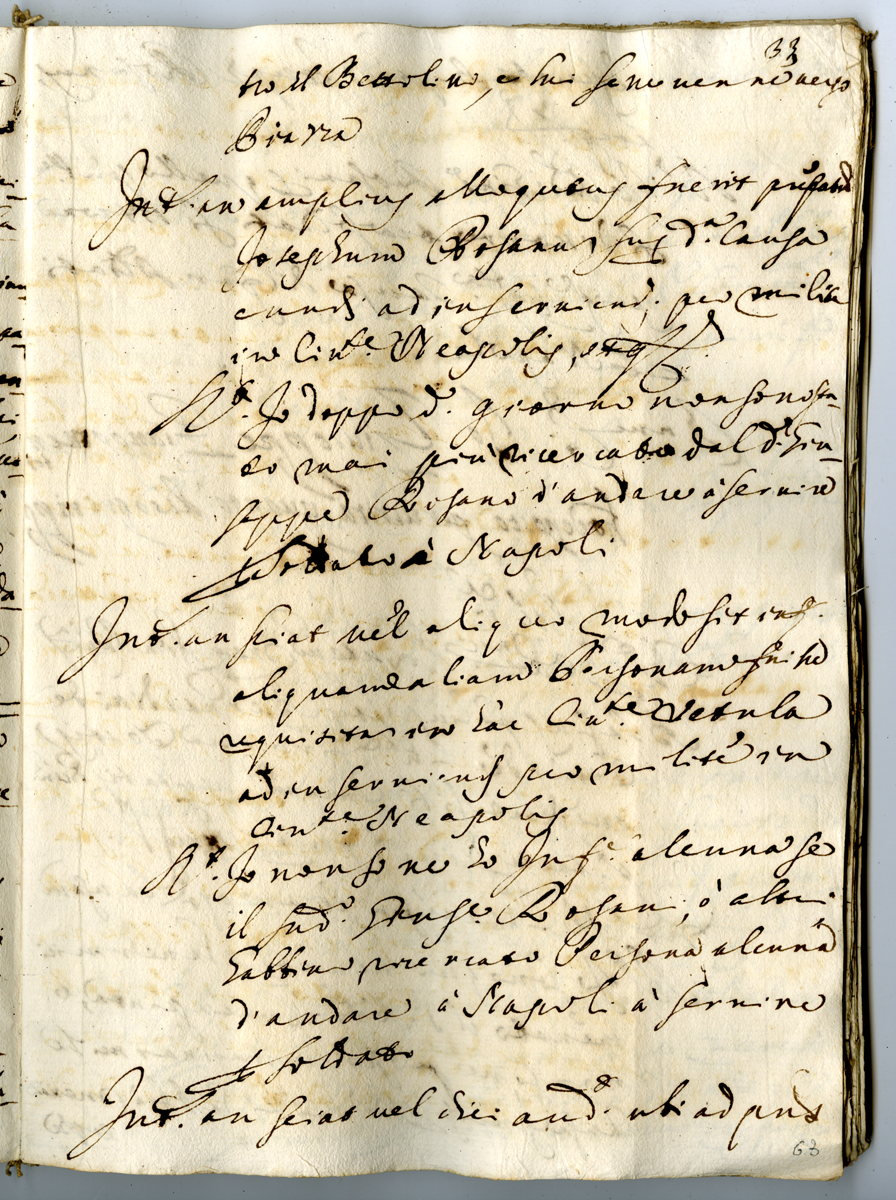 33
tro il Bettolino, e lui se ne venne verso
Piazza
Int. an amplius alloquutus fuerit
Josephum Rosanus sup. da. causa
eundi ad inserviend. pro milite
in Civite. Neapolis,
Rt. Io doppo d. giorno non sono sta-
to mai più ricercato dal do. Giu-
seppe Rosano d'andare à servire
p soldato à Napoli
Int. an sciat vel aliquo modo sit inf.
aliquam aliam Personam fuisse
requisitam in hac Civite. Vetula
ad inserviend pro milite in
Civite. Neapolis
Rt. Io non so ne ho Infe. alcuna se
il sudo. Giuse. Rosani, ò altri
habbino ricercato Persona alcuna
d'andare à Napoli à servire
p soldato
Int. an sciat vel dici aud. ubi ad pns
63